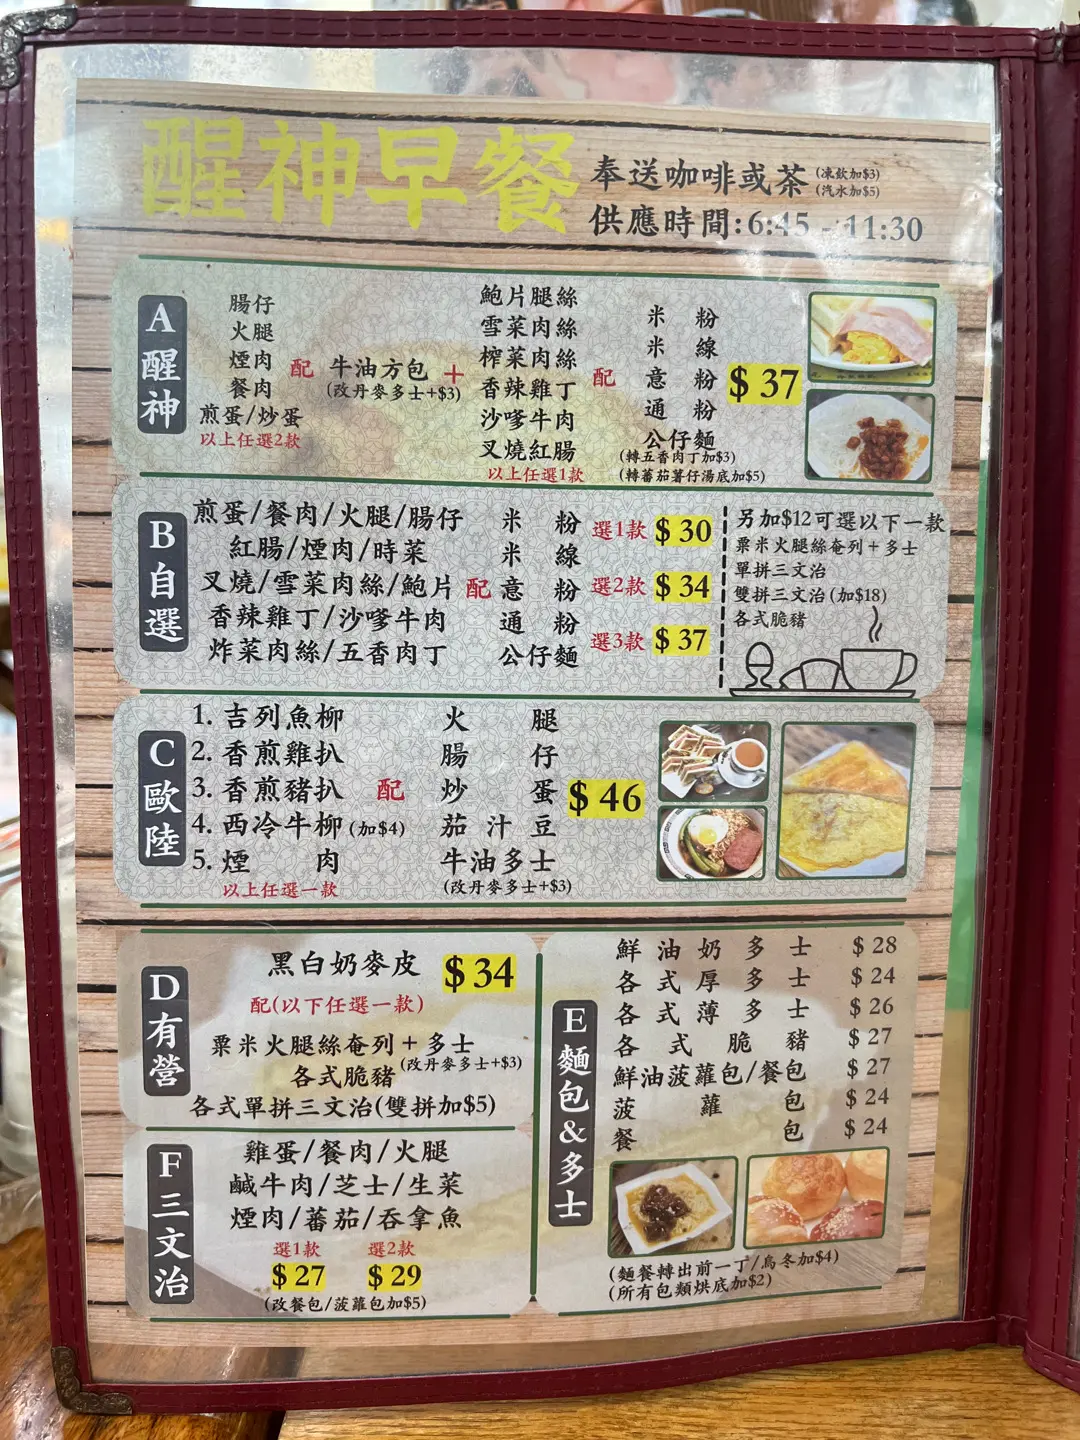 醒神早餐
奉送咖啡或茶(凍飲加$3)(汽水加$5)
供應時間:6:45 - 11:30
A醒神
腸仔
火腿
煙肉
餐肉
煎蛋/炒蛋
以上任選2款
配
牛油方包
(改丹麥多士+$3)
+
鮑片腿絲
雪菜肉絲
榨菜肉絲
香辣雞丁
沙嗲牛肉
叉燒紅腸
以上任選1款
配
米粉
米線
意粉
通粉
公仔麵
(轉五香肉丁加$3)
(轉蕃茄薯仔湯底加$5)
$ 37
B自選
煎蛋/餐肉/火腿/腸仔
紅腸/煙肉/時菜
叉燒/雪菜肉絲/鮑片
香辣雞丁/沙嗲牛肉
炸菜肉絲/五香肉丁
配
米粉
米線
意粉
通粉
公仔麵
選1款 $ 30
選2款 $ 34
選3款 $ 37
另加$12可選以下一款
粟米火腿絲奄列+多士
單拼三文治
雙拼三文治(加$18)
各式脆豬
C歐陸
1. 吉列魚柳
2. 香煎雞扒
3. 香煎豬扒
4. 西冷牛柳(加$4)
5. 煙肉
以上任選一款
配
火腿
腸仔
炒蛋
茄汁豆
牛油多士
(改丹麥多士+$3)
$ 46
D有營
黑白奶麥皮 $ 34
配(以下任選一款)
粟米火腿絲奄列+多士
(改丹麥多士+$3)
各式脆豬
各式單拼三文治(雙拼加$5)
E麵包&多士
鮮油奶多士 $ 28
各式厚多士 $ 24
各式薄多士 $ 26
各式脆豬 $ 27
鮮油菠蘿包/餐包 $ 27
菠蘿包 $ 24
餐包 $ 24
(麵餐轉出前一丁/烏冬加$4)
(所有包類烘底加$2)
F三文治
雞蛋/餐肉/火腿
鹹牛肉/芝士/生菜
煙肉/蕃茄/吞拿魚
選1款 選2款
$ 27 $ 29
(改餐包/菠蘿包加$5)